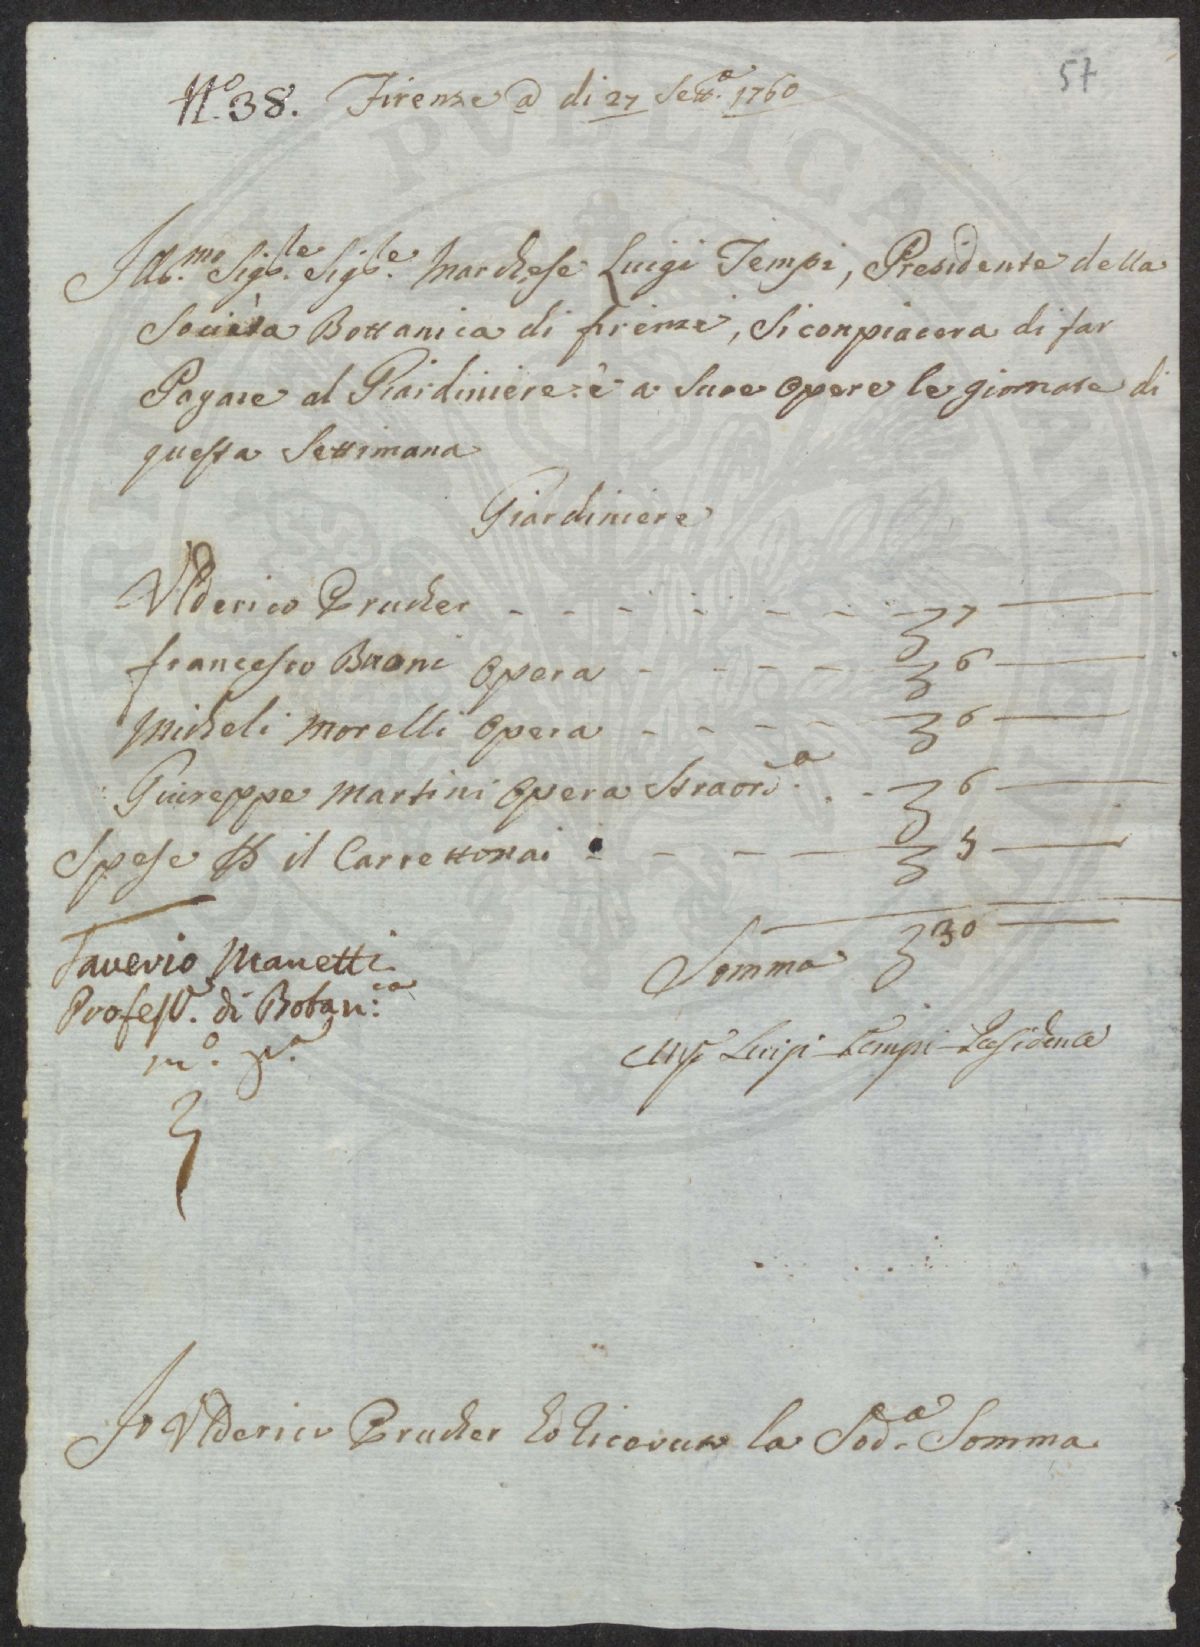 57
N.o 38. Firenze a di 27 Sett.e 1760
Ill.mo Sig.le Sig.le Marchese Luigi Tempi, Presidente della
Società Bottanica di firenze, Si conpiacera di far
Pagare al Giardiniere è a Suoe Opere le giornate di
questa Settimana
Giardiniere
Vlderico Prucher - - - - - - - - 7 —
francesco Buoni Opera - - - - - 6 —
Micheli Morelli Opera - - - - - 6 —
Giuseppe Martini Opera Straord.a . - 6 —
Spese il Carrettonai - - - - 5 —
Somma 30 —
Saverio Manetti
Profess.r di Botan.ca
m.o p.a
Luigi Tempi Presidente
Io Vlderico Prucher ho Ricevuto la Sod.a Somma